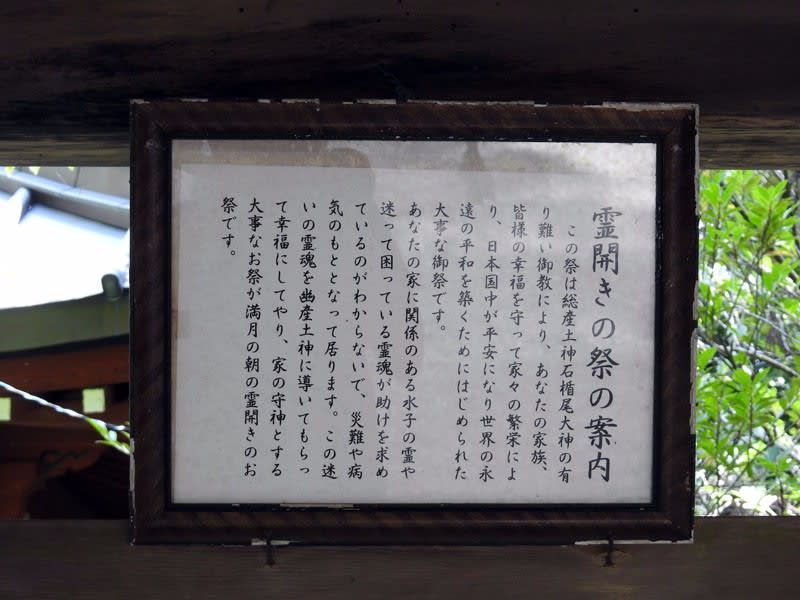 霊開きの祭の案内
この祭は総産土神石楯尾大神の有
り難い御教により、あなたの家族、
皆様の幸福を守って家々の繁栄によ
り、日本国中が平安になり世界の永
遠の平和を築くためにはじめられた
大事な御祭です。
あなたの家に関係のある水子の霊や
迷って困っている霊魂が助けを求め
ているのがわからないで、災難や病
気のもととなって居ります。この迷
いの霊魂を幽産土神に導いてもらっ
て幸福にしてやり、家の守神とする
大事なお祭が満月の朝の霊開きのお
祭です。